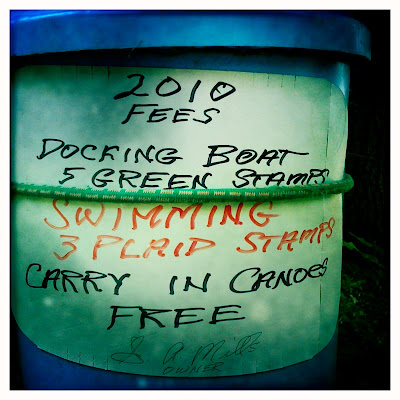 2010
FEES
DOCKING BOAT
5 GREEN STAMPS
SWIMMING
3 PLAID STAMPS
CARRY IN CANOES
FREE
A Mills
OWNER